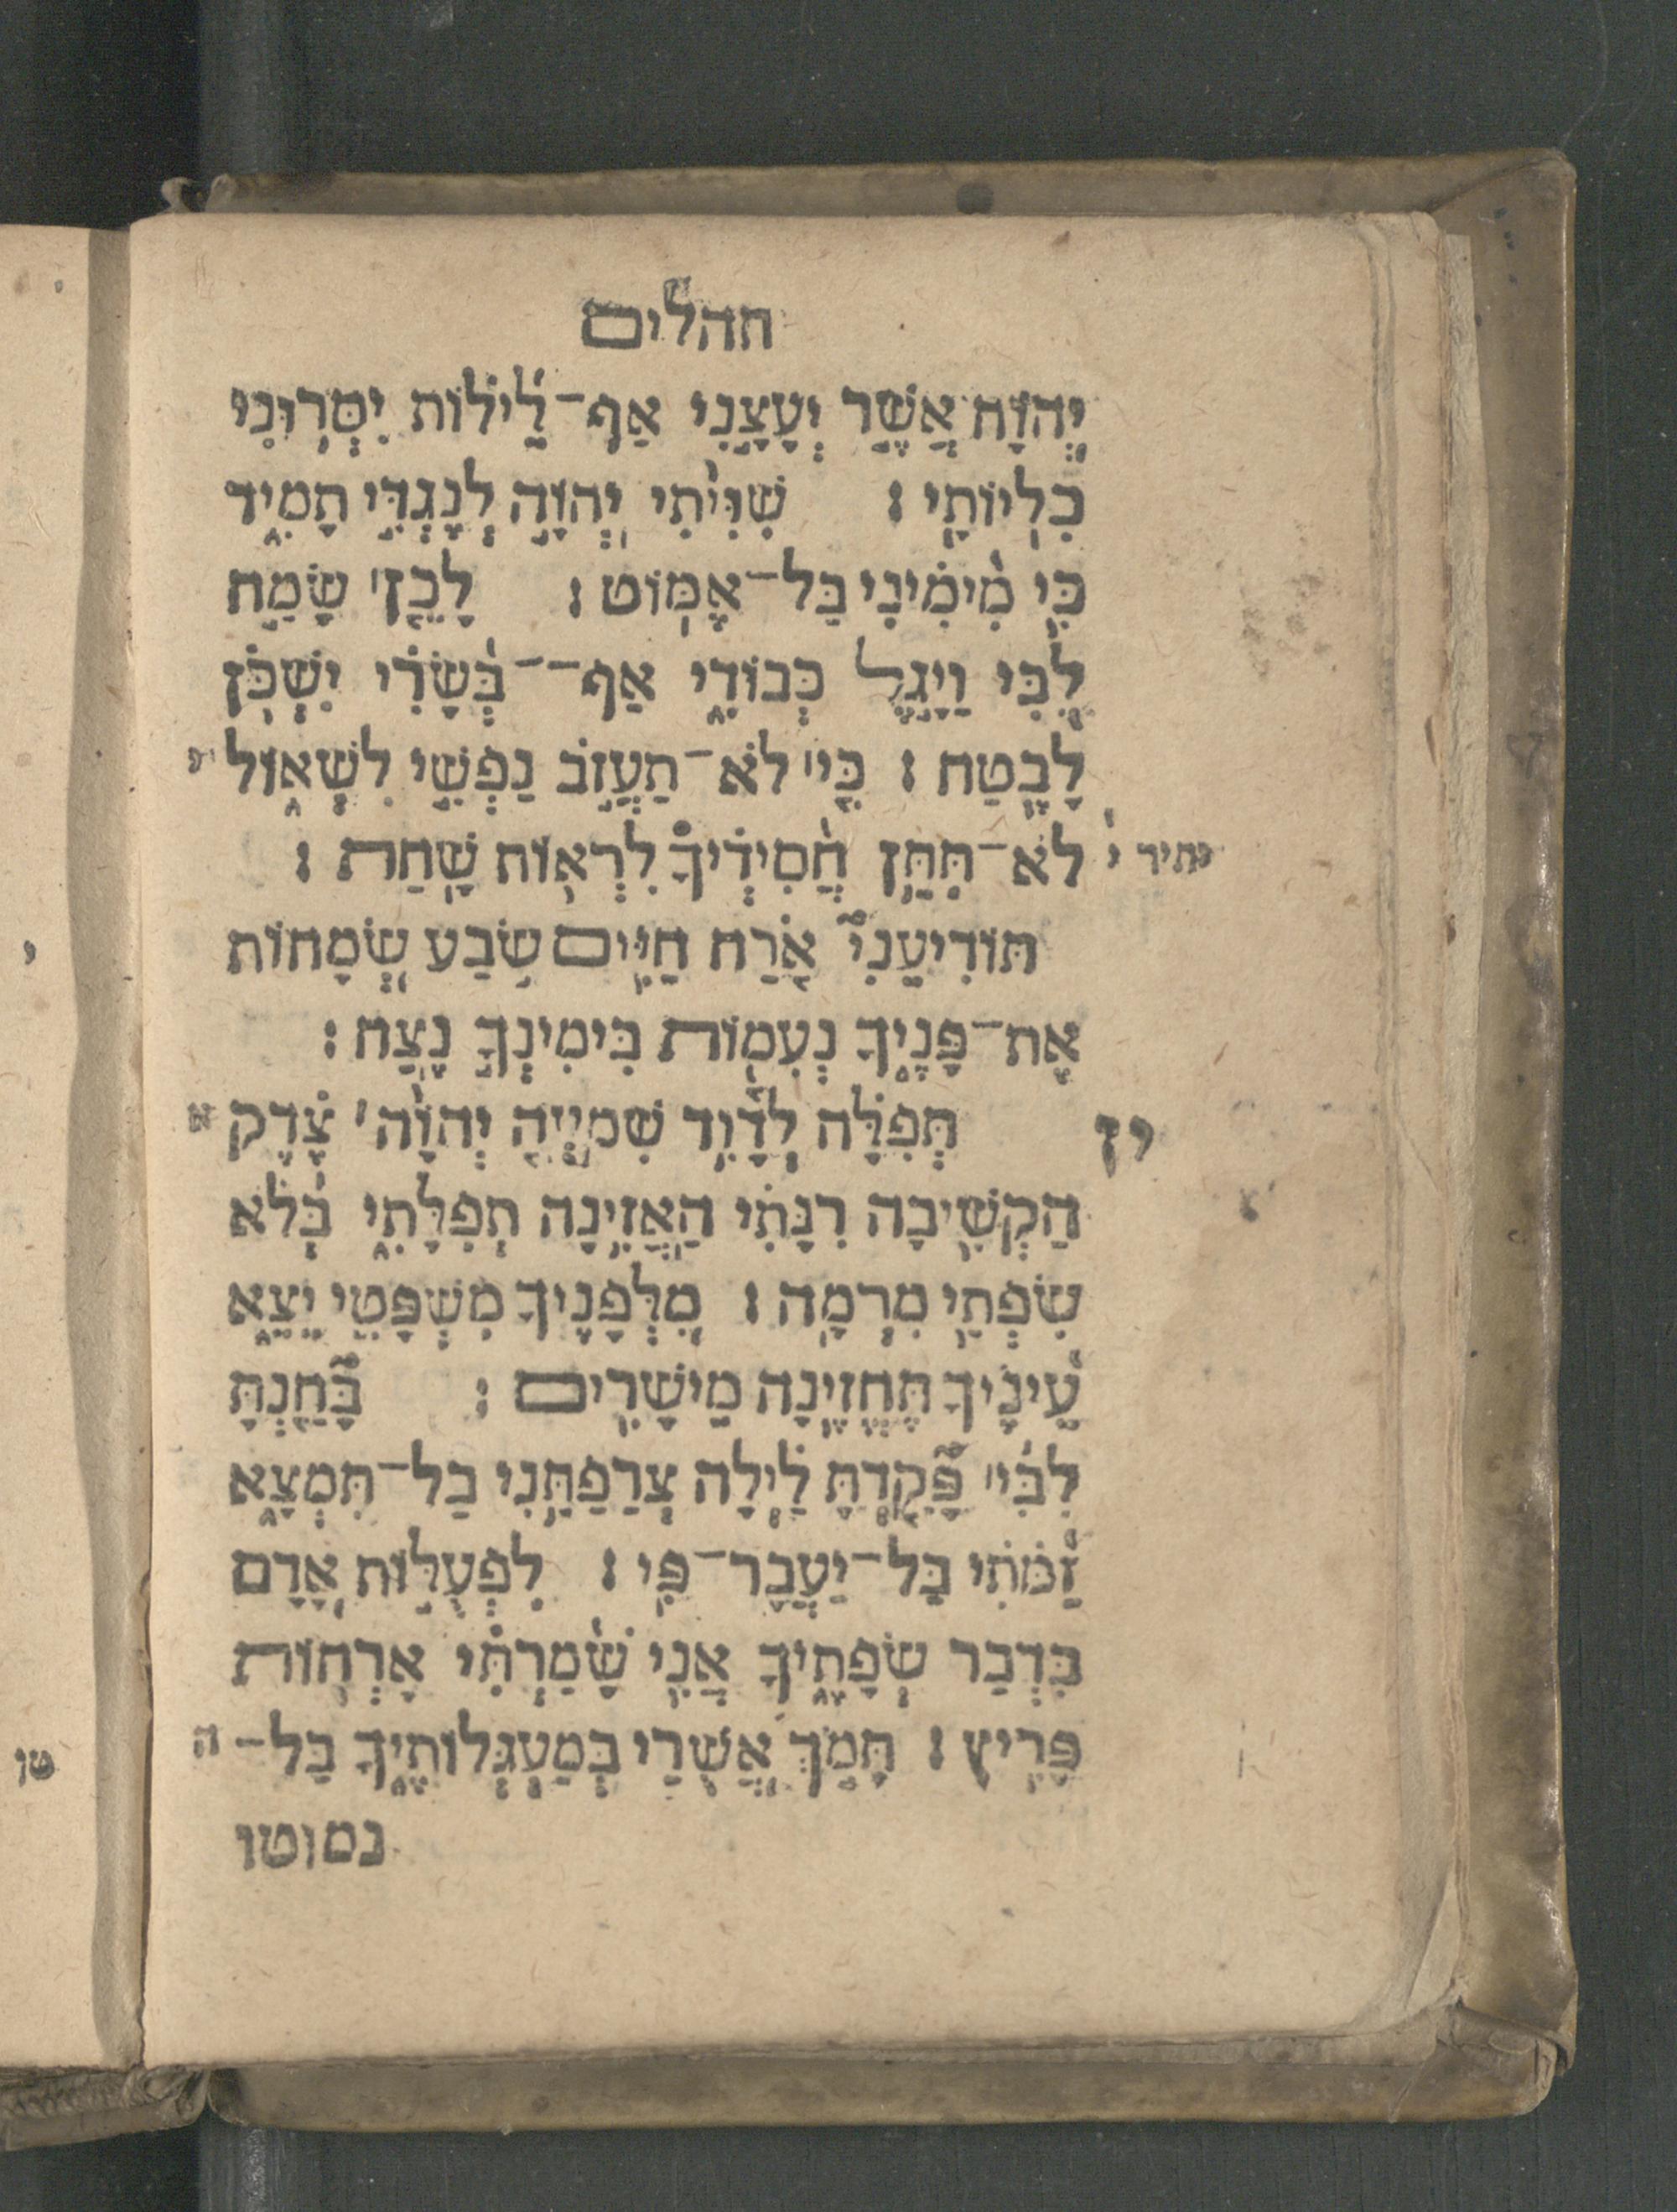 תהלים
יְהוָה אֲשֶׁר יְעָצָנִי אַף־לֵילוֹת יִסְּרוּנִי
כִלְיוֹתָי׃ שִׁוִּיתִי יְהוָה לְנֶגְדִּי תָמִיד
כִּי מִימִינִי בַּל־אֶמּוֹט׃ לָכֵן שָׂמַח
לִבִּי וַיָּגֶל כְּבוֹדִי אַף־־בְּשָׂרִי יִשְׁכֹּן
לָבֶטַח׃ כִּי לֹא־תַעֲזֹב נַפְשִׁי לִשְׁאוֹל י
לֹא־תִּתֵּן חֲסִידֶיךָ לִרְאוֹת שָׁחַת׃ יתיר י
תּוֹדִיעֵנִי אֹרַח חַיִּים שֹׂבַע שְׂמָחוֹת
אֶת־פָּנֶיךָ נְעִמוֹת בִּימִינְךָ נֶצַח׃
יז תְּפִלָּה לְדָוִד שִׁמְעָה יְהוָה צֶדֶק א
הַקְשִׁיבָה רִנָּתִי הַאֲזִינָה תְפִלָּתִי בְּלֹא
שִׂפְתֵי מִרְמָה׃ מִלְּפָנֶיךָ מִשְׁפָּטִי יֵצֵא
עֵינֶיךָ תֶּחֱזֶינָה מֵישָׁרִים׃ בָּחַנְתָּ
לִבִּי פָּקַדְתָּ לַּיְלָה צְרַפְתַּנִי בַל־תִּמְצָא
זַמֹּתִי בַּל־יַעֲבָר־פִּי׃ לִפְעֻלּוֹת אָדָם
בִּדְבַר שְׂפָתֶיךָ אֲנִי שָׁמַרְתִּי אָרְחוֹת
פָּרִיץ׃ תָּמֹךְ אֲשֻׁרַי בְּמַעְגְּלוֹתֶיךָ בַּל־ ה
נמוטו
י
טו